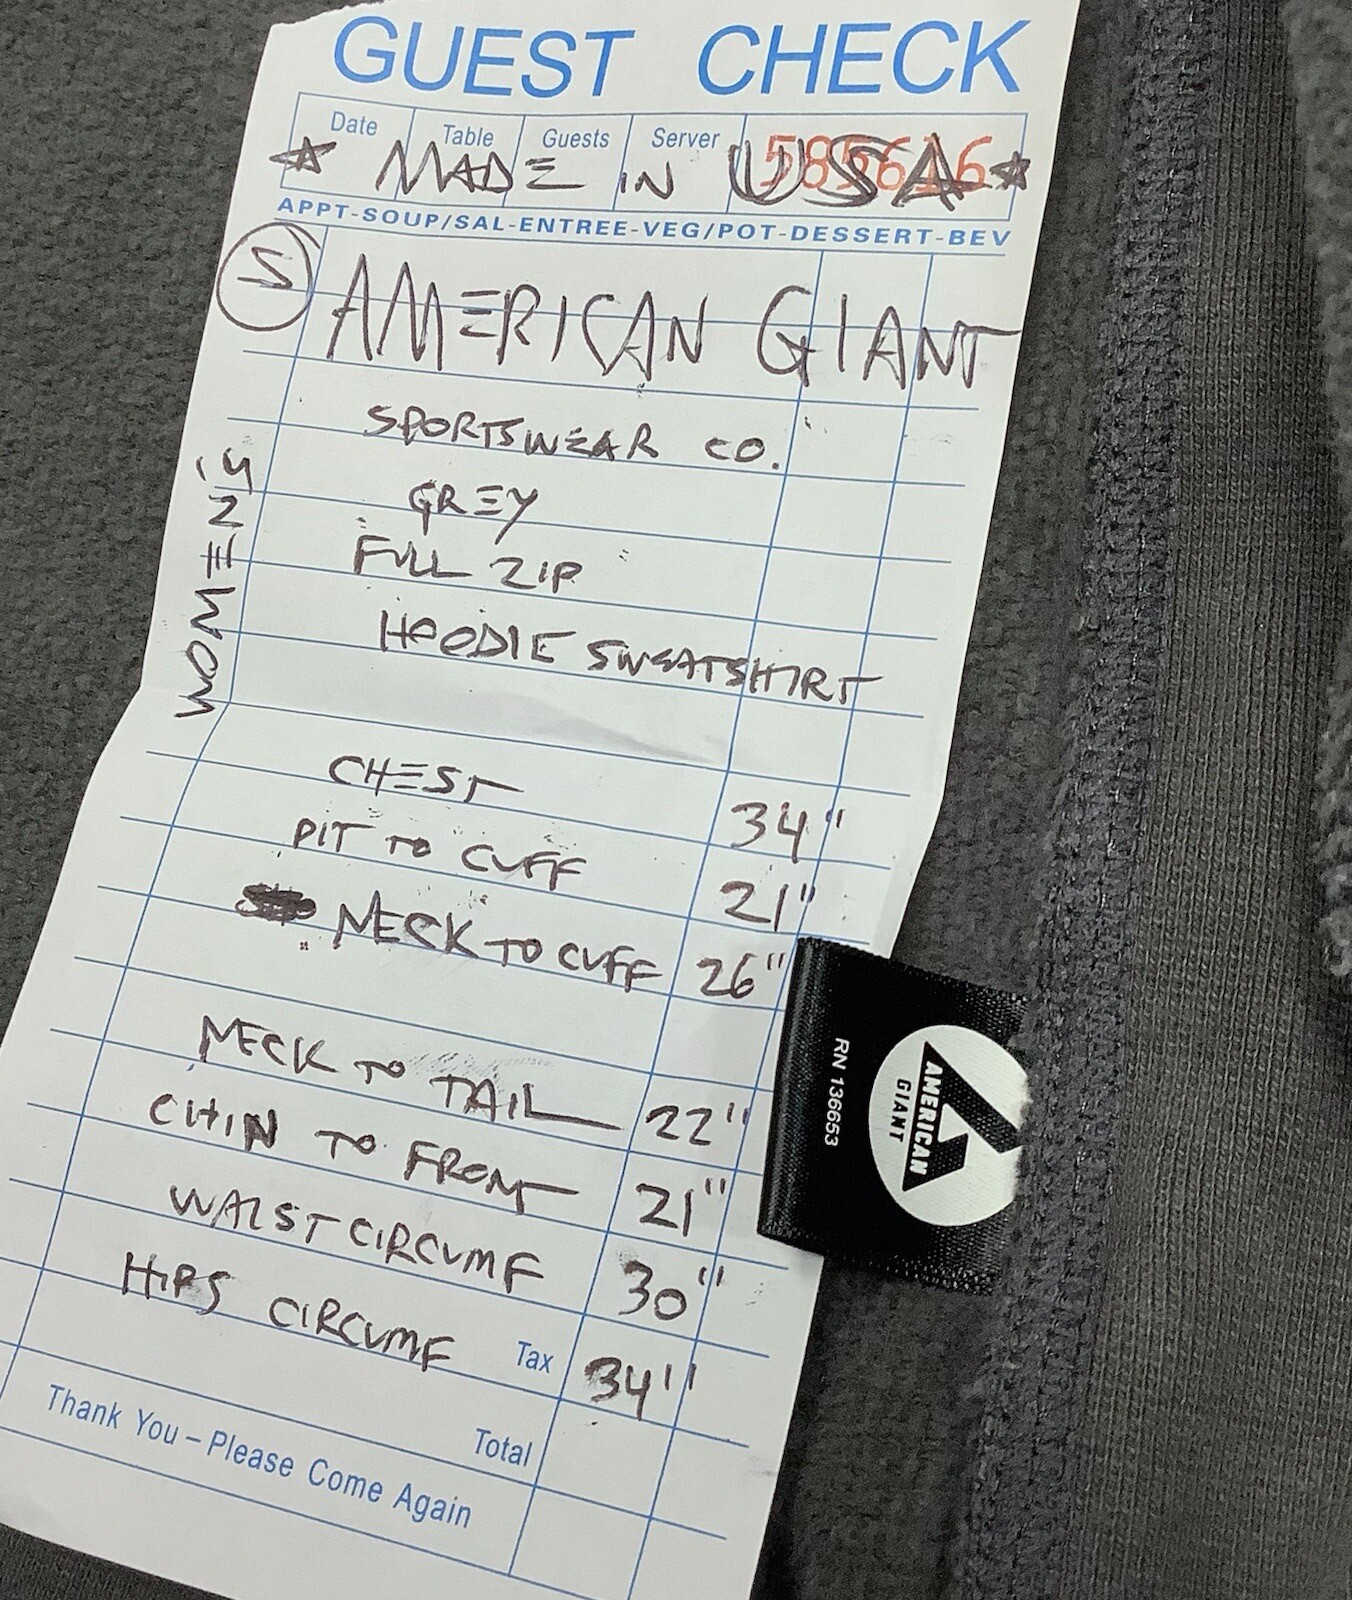 GUEST CHECK
Date Table Guests Server
585616
☆ MADE IN USA ☆
APPT-SOUP/SAL-ENTREE-VEG/POT-DESSERT-BEV
S AMERICAN GIANT
SPORTSWEAR CO.
GREY
FULL ZIP
HOODIE SWEATSHIRT
WOMEN'S
CHEST 34"
PIT TO CUFF 21"
NECK TO CUFF 26"
NECK TO TAIL 22"
CHIN TO FRONT 21"
WAIST CIRCUMF 30"
HIPS CIRCUMF 34"
Tax
Total
Thank You – Please Come Again
AMERICAN
GIANT
RN 136653